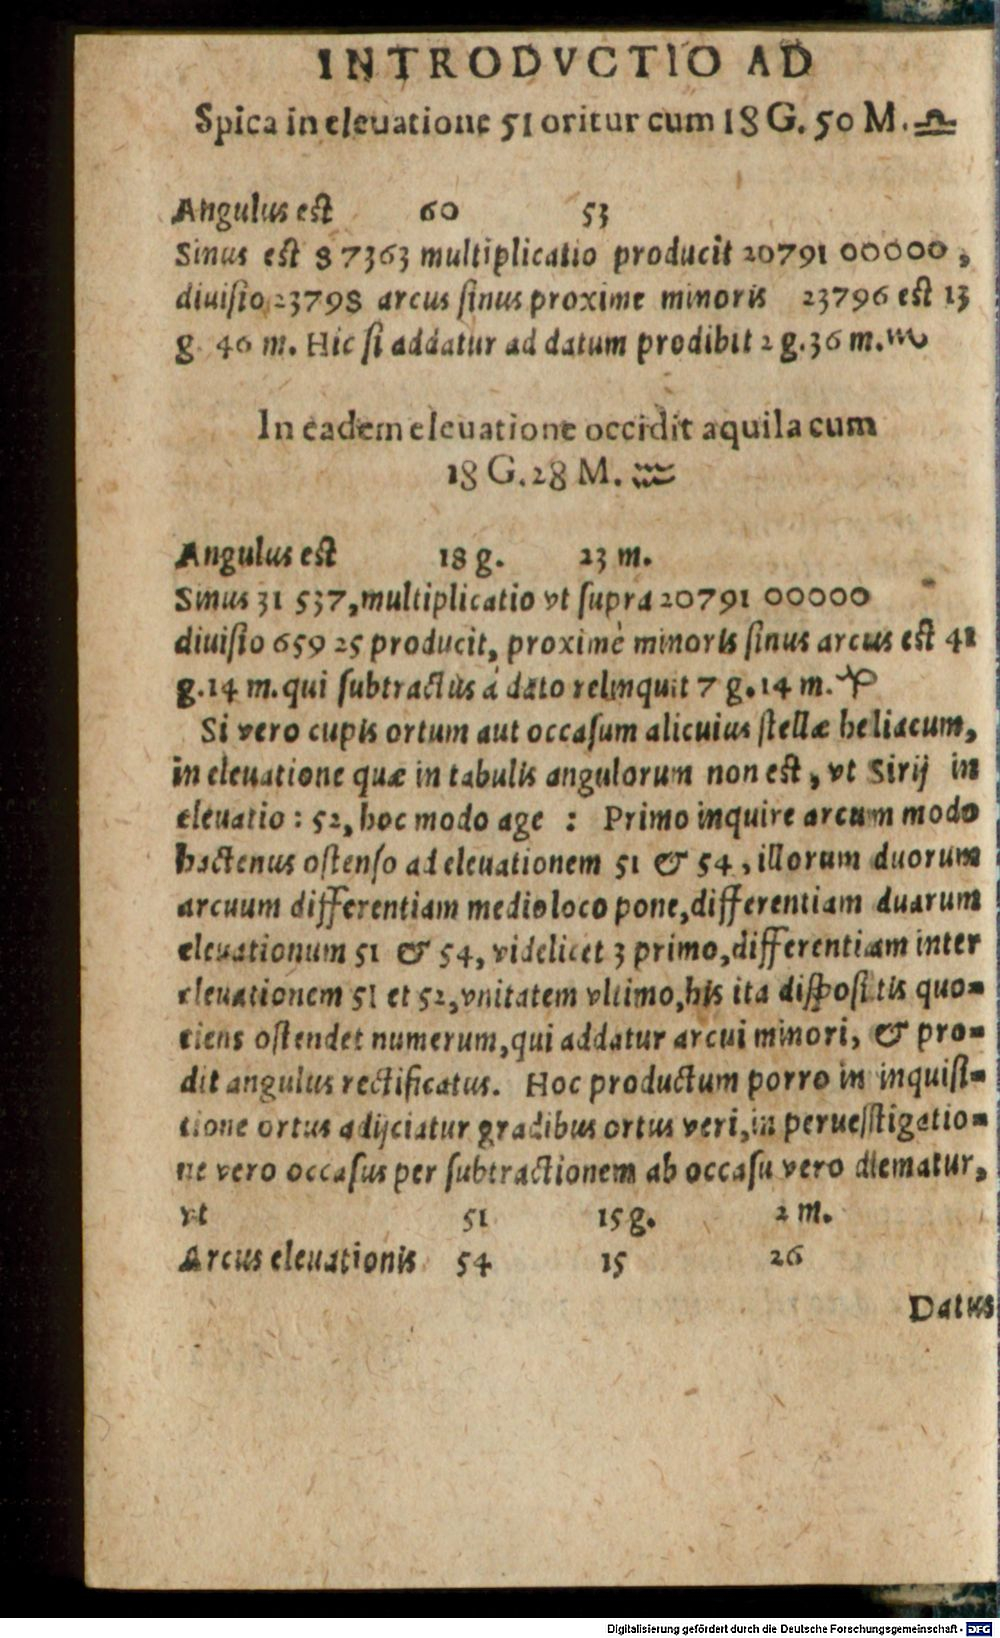 INTRODVCTIO AD
Spica in eleuatione 51 oritur cum 18 G. 50 M. ♎
Angulus est 60 53
Sinus est 87363 multiplicatio producit 20791 00000,
diuisio 23798 arcus sinus proxime minoris 23796 est 13
g. 46 m. Hic si addatur ad datum prodibit 2 g. 36 m. ♏
In eadem eleuatione occidit aquila cum
18 G. 28 M. ♒
Angulus est 18 g. 23 m.
Sinus 31 537, multiplicatio vt supra 20791 00000
diuisio 659 25 producit, proximè minoris sinus arcus est 41
g. 14 m. qui subtractus à dato relinquit 7 g. 14 m. ♑
Si vero cupis ortum aut occasum alicuius stellæ heliacum,
in eleuatione quæ in tabulis angulorum non est, vt Sirij in
eleuatio: 52, hoc modo age : Primo inquire arcum modo
hactenus ostenso ad eleuationem 51 & 54, illorum duorum
arcuum differentiam medio loco pone, differentiam duarum
eleuationum 51 & 54, videlicet 3 primo, differentiam inter
eleuationem 51 et 52, vnitatem vltimo, his ita dispositis quo-
tiens ostendet numerum, qui addatur arcui minori, & pro-
dit angulus rectificatus. Hoc productum porro in inquisi-
tione ortus adijciatur gradibus ortus veri, in peruesstigatio-
ne vero occasus per subtractionem ab occasu vero diematur,
vt 51 15 g. 2 m.
Arcus eleuationis 54 15 26
Datus
Digitalisierung gefördert durch die Deutsche Forschungsgemeinschaft - DFG